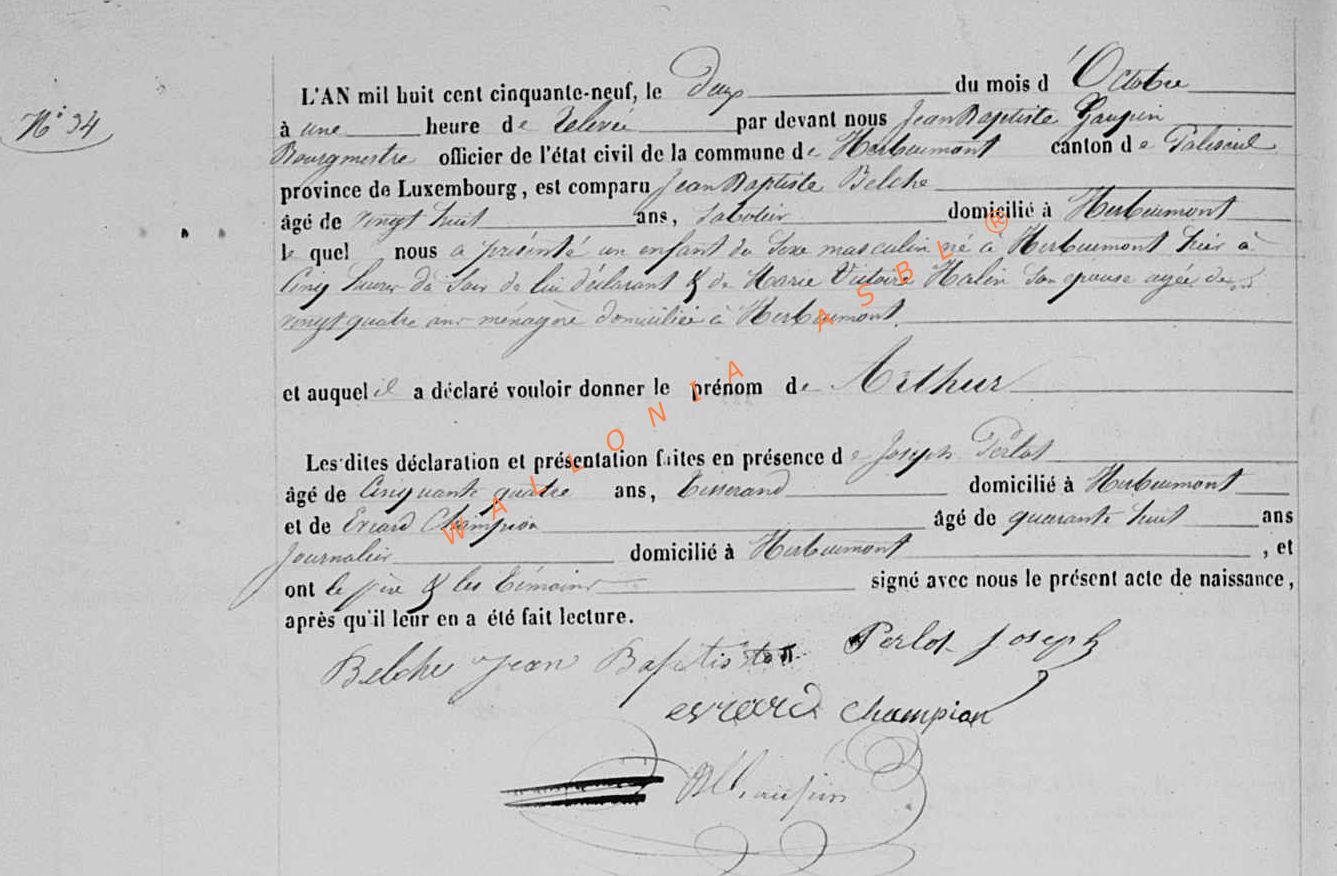 N° 34
L'AN mil huit cent cinquante-neuf, le deux du mois d'Octobre
à une heure de relevée par devant nous Jean Baptiste Gaupin
Bourgmestre officier de l'état civil de la commune de Herbeumont canton de Paliseul
province de Luxembourg, est comparu Jean Baptiste Belche
âgé de vingt huit ans, sabotier domicilié à Herbeumont
le quel nous a présenté un enfant du sexe masculin né à Herbeumont hier à
cinq heures du soir de lui déclarant & de Marie Victoire Halin son epouse agée de
vingt quatre ans ménagère domiciliée à Herbeumont.
et auquel il a déclaré vouloir donner le prénom de Arthur
Les dites déclaration et présentation faites en présence de Joseph Perlot
âgé de cinquante quatre ans, tisserand domicilié à Herbeumont
et de Evrard Champion âgé de quarante huit ans
journalier domicilié à Herbeumont, et
ont le père & les témoins signé avec nous le présent acte de naissance,
après qu'il leur en a été fait lecture.
Belche Jean Baptiste Perlot Joseph
evrard champion
WALLONIA ASBL ®